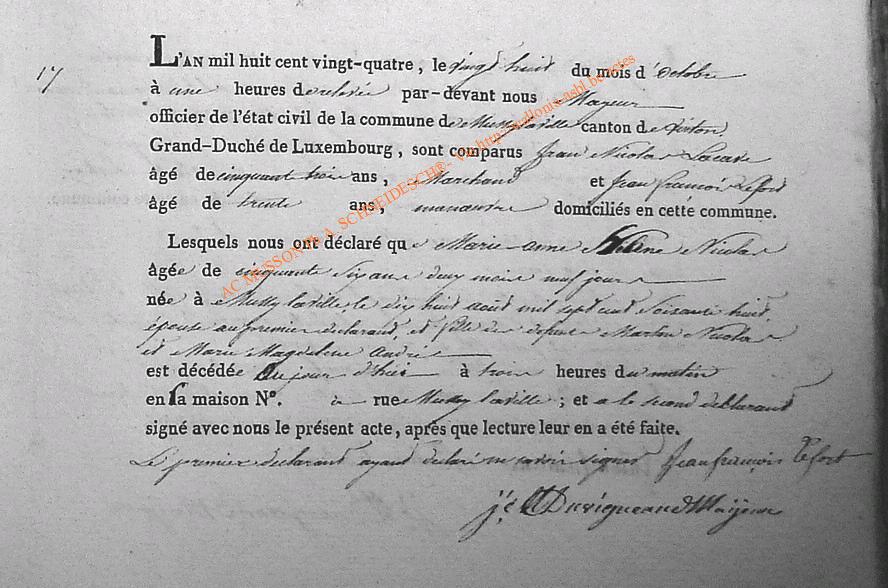 17
L'AN mil huit cent vingt-quatre, le vingt huit du mois d'Octobre
à une heures de relevée par-devant nous Mayeur
officier de l'état civil de la commune de Mussy laville canton de Virton
Grand-Duché de Luxembourg, sont comparus Jean Nicolas Lacave
âgé de cinquant trois ans, Marchand et Jean francois Lefort
âgé de trente ans, manœuvre domiciliés en cette commune.
Lesquels nous ont déclaré que Marie-anne Hélène Nicolas
âgée de cinquante six ans deux mois neuf jours
née à Mussy laville, le dix huit août mil sept cent soisante huit,
épouse au premier déclarant, et fille de defunt Martin Nicolas
et Marie Magdeleine André
est décédée du jour d'hier à trois heures du matin
en sa maison N°. à rue Mussy laville; et a le second déclarant
signé avec nous le présent acte, après que lecture leur en a été faite.
Le premier déclarant ayant déclaré ne savoir signer Jean françois Lefort
Duvigneaud Maÿeur
AC MUSSON © A SCHNEIDESCH - via http://wallonia-asbl.be/actes